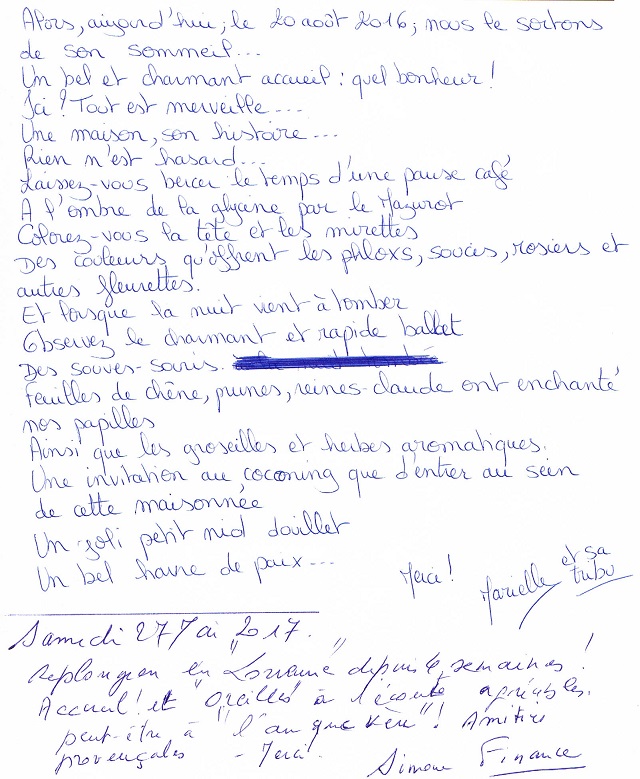 Alors, aujourd'hui, le 20 août 2016, nous le sortons
de son sommeil...
Un bel et charmant accueil : quel bonheur !
Ici ? Tout est merveille...
Une maison, son histoire...
Rien n'est hasard...
Laissez-vous bercer le temps d'une pause café
A l'ombre de la glycine par le Mazurot
Colorez-vous la tête et les mirettes
Des couleurs qu'offrent les phloxs, soucis, rosiers et
autres fleurettes.
Et lorsque la nuit vient à tomber
Observez le charmant et rapide ballet
Des souves-souris.
Feuilles de chêne, prunes, reines-claude ont enchanté
nos papilles
Ainsi que les groseilles et herbes aromatiques.
Une invitation au cocooning que d'entrer au sein
de cette maisonnée
Un joli petit nid douillet
Un bel havre de paix...
Merci !
Marielle et sa
tribu
Samedi 27 Mai 2017.
replongeon en "Lorraine" depuis semaines !
Accueil ! et "oreilles" à l'écoute agréables.
peut-être à "l'an que vèn" ! Amitiés
provençales - Merci !
Simone Finance